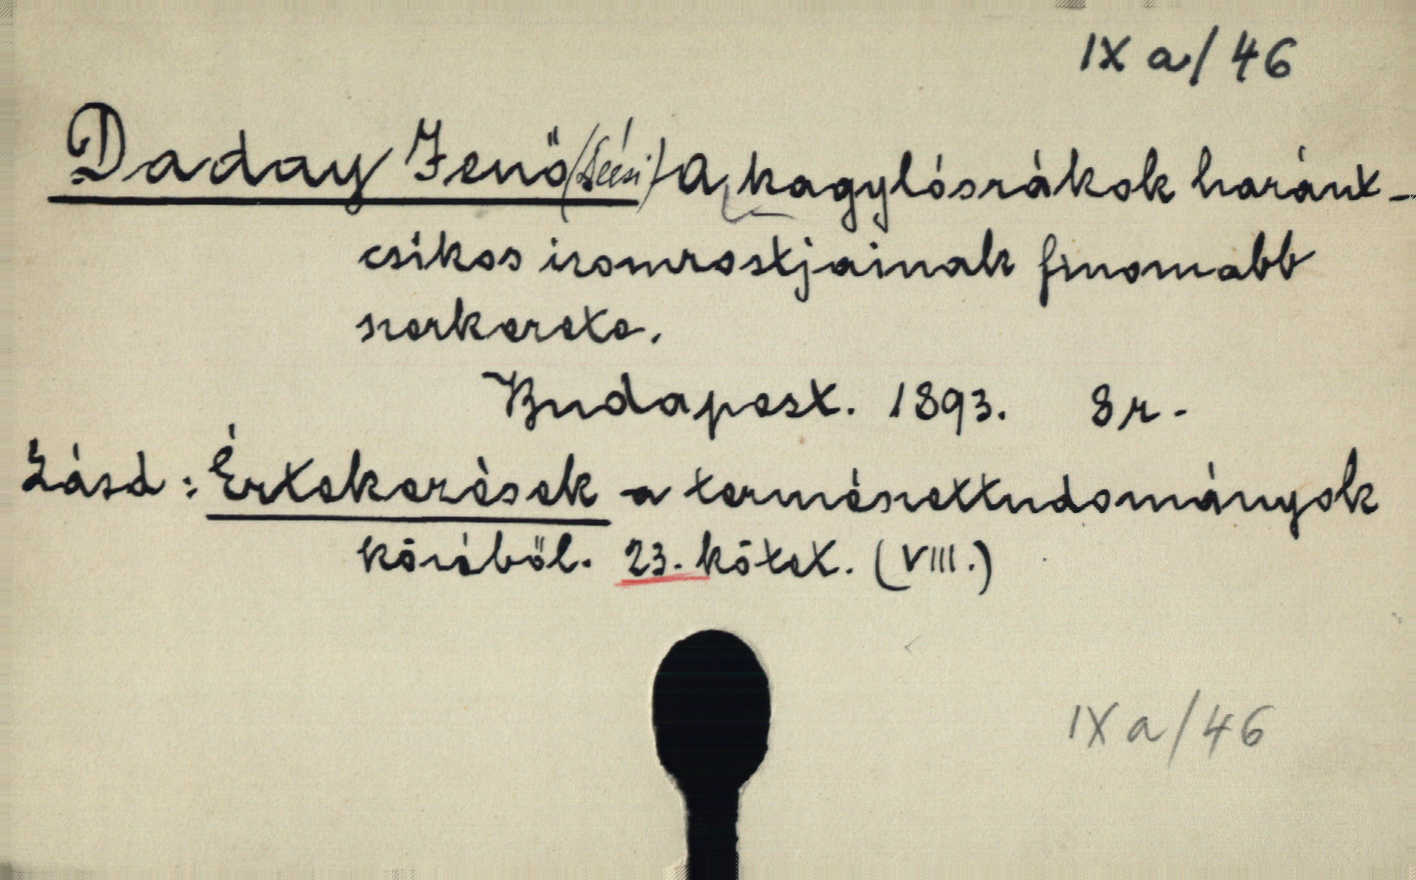 IX a/46
Daday Jenő (Deési) A kagylósrákok haránt-
csikos izomrostjainak finomabb
szerkezete.
Budapest. 1893. 8r.
Lásd: Értekezések a természettudományok
köréből. 23. kötet. (VIII.)
IX a/46